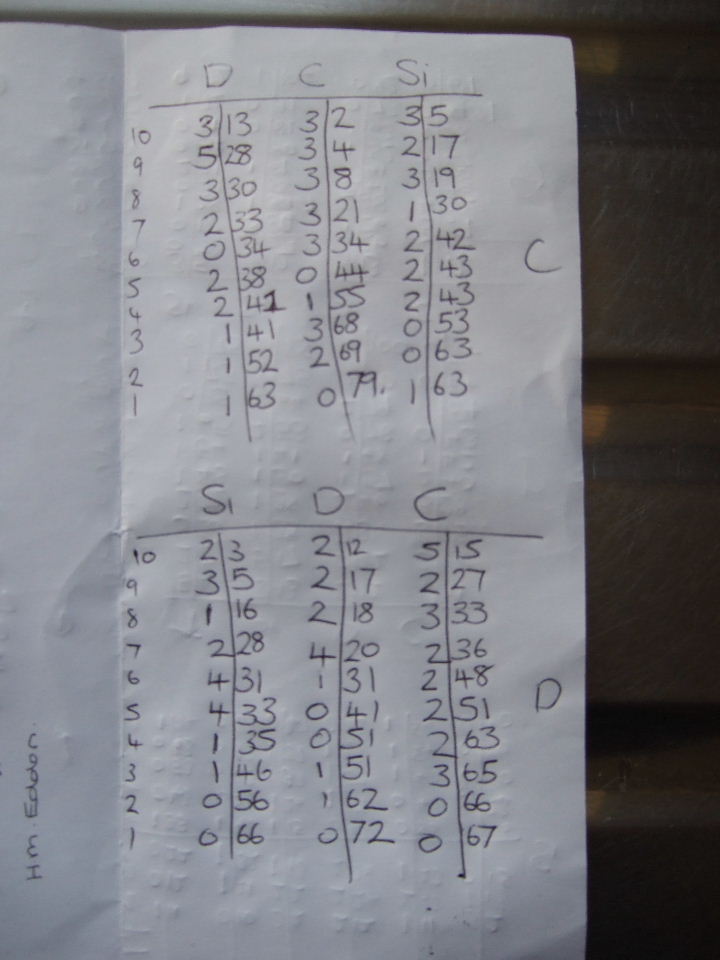 D C Si
10 3 13 3 2 3 5
9 5 28 3 4 2 17
8 3 30 3 8 3 19
7 2 33 3 21 1 30
6 0 34 3 34 2 42
5 2 38 0 44 2 43
4 2 41 1 55 2 43
3 1 41 3 68 0 53
2 1 52 2 69 0 63
1 1 63 0 79. 1 63
C
Si D C
10 2 3 2 12 5 15
9 3 5 2 17 2 27
8 1 16 2 18 3 33
7 2 28 4 20 2 36
6 4 31 1 31 2 48
5 4 33 0 41 2 51
4 1 35 0 51 2 63
3 1 46 1 51 3 65
2 0 56 1 62 0 66
1 0 66 0 72 0 67
D
Hm. Eddon.